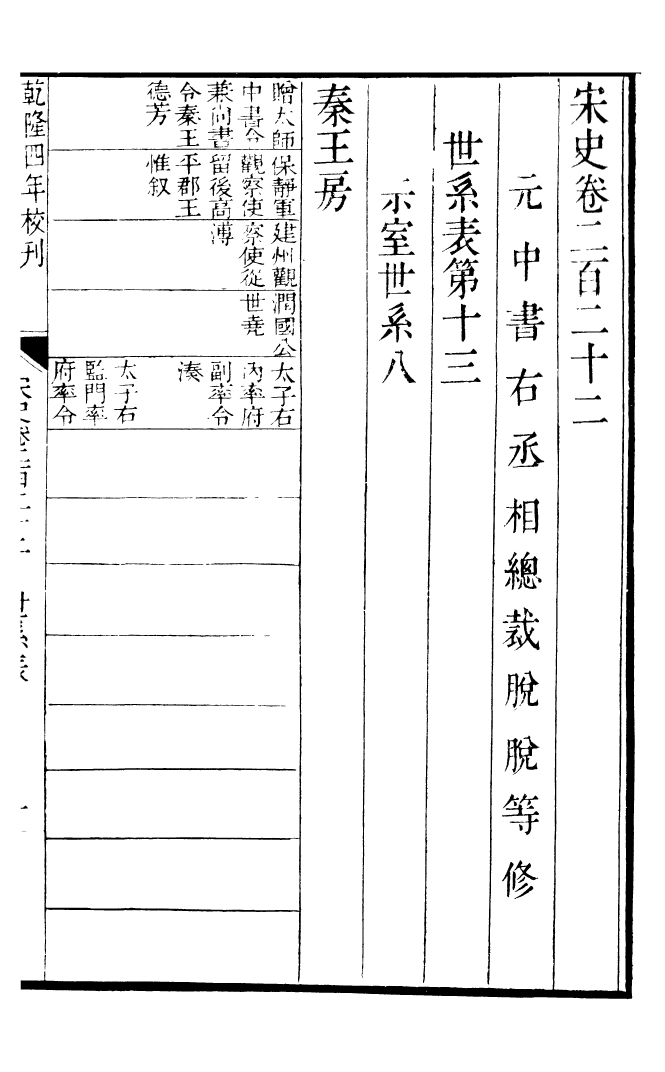 宋史卷二百二十二
元中書右丞相總裁脫脫等修
世系表第十三
宗室世系八
秦王房
贈太師
中書令
兼尚書
令秦王
德芳
保靜軍
觀察使
留後高
平郡王
惟叙
建州觀
察使從
溥
潤國公
世堯
太子右
內率府
副率令
湊
太子右
監門率
府率令
乾隆四年校刊
宋史卷二百二十二 世系表 一